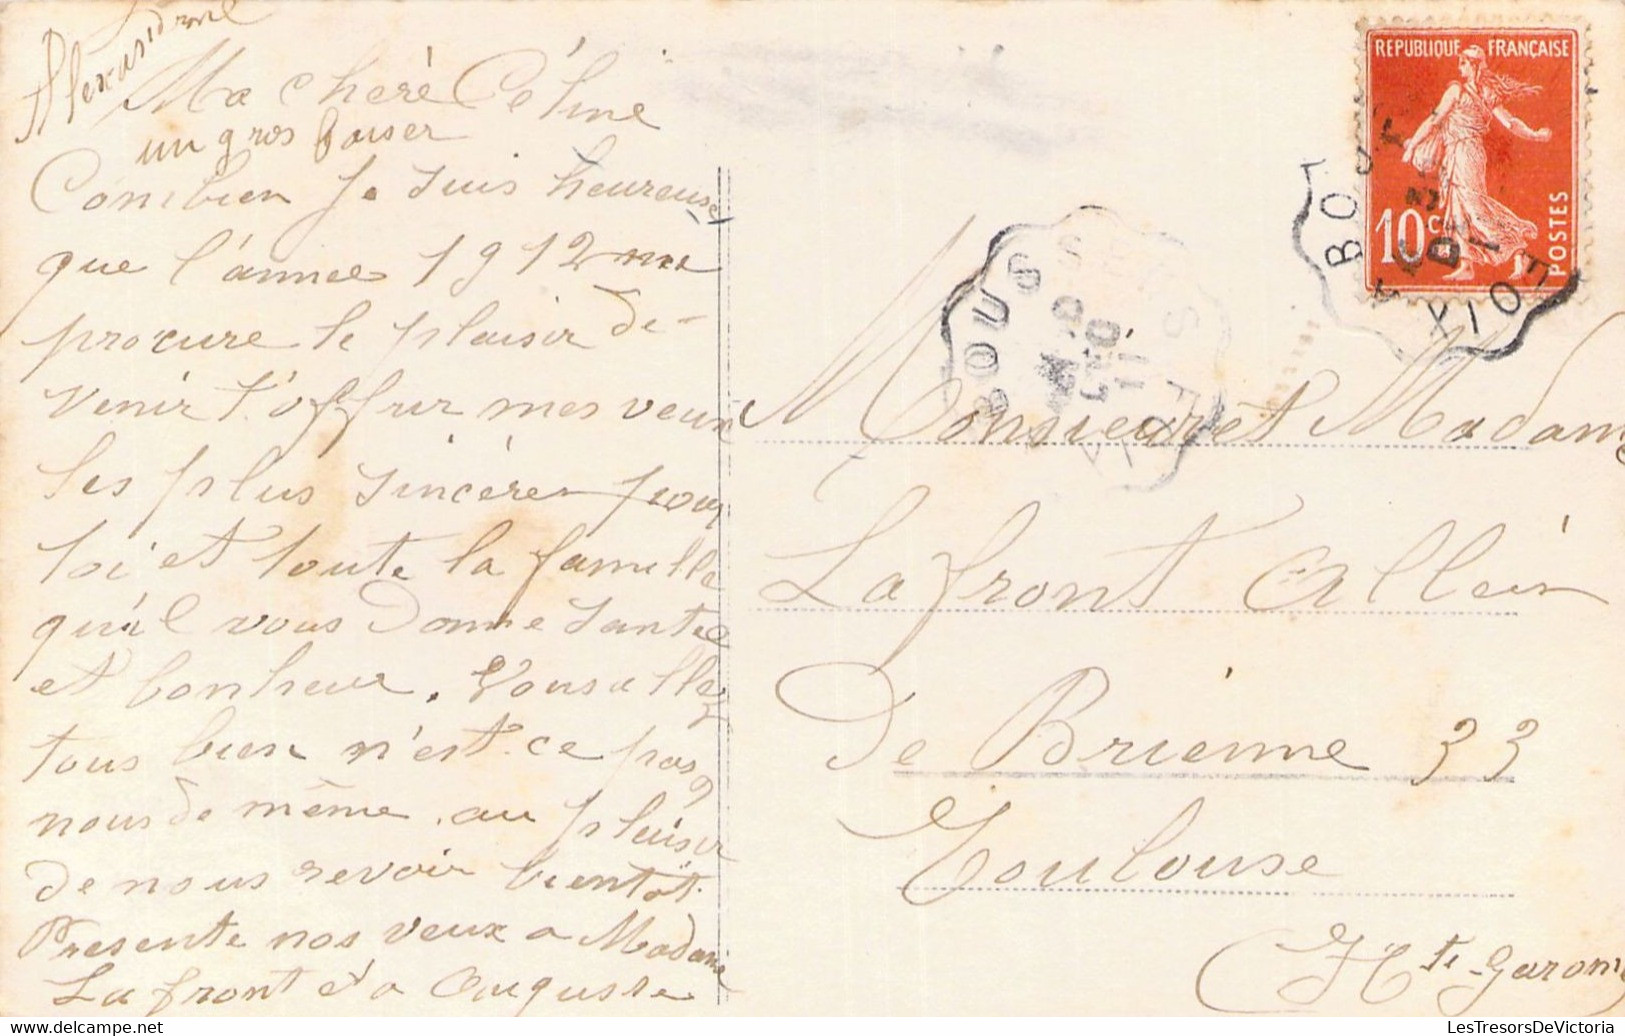 Alexandrine
Ma cheré Céline
un gros baiser
Combien Je suis heureuse
que l'année 1912 me
procure le plaisir de
venir t'offrir mes veux
les plus sincères pour
toi et toute la famille
qu'il vous Donne Santé
et bonheur. Vous allez
tous bien n'est-ce pas
nous de même. au plaisir
de nous revoir bientôt.
Presente nos veux a Madame
Lafront et a Auguste
REPUBLIQUE FRANÇAISE
10c
POSTES
BOUSSENS
FOIX
BOU
FOIX
Monsieur et Madame
Lafront Alleés
De Brienne 33
Toulouse
(Hte Garonne
www.LesTresorsDeVictoria.com
LesTresorsDeVictoria